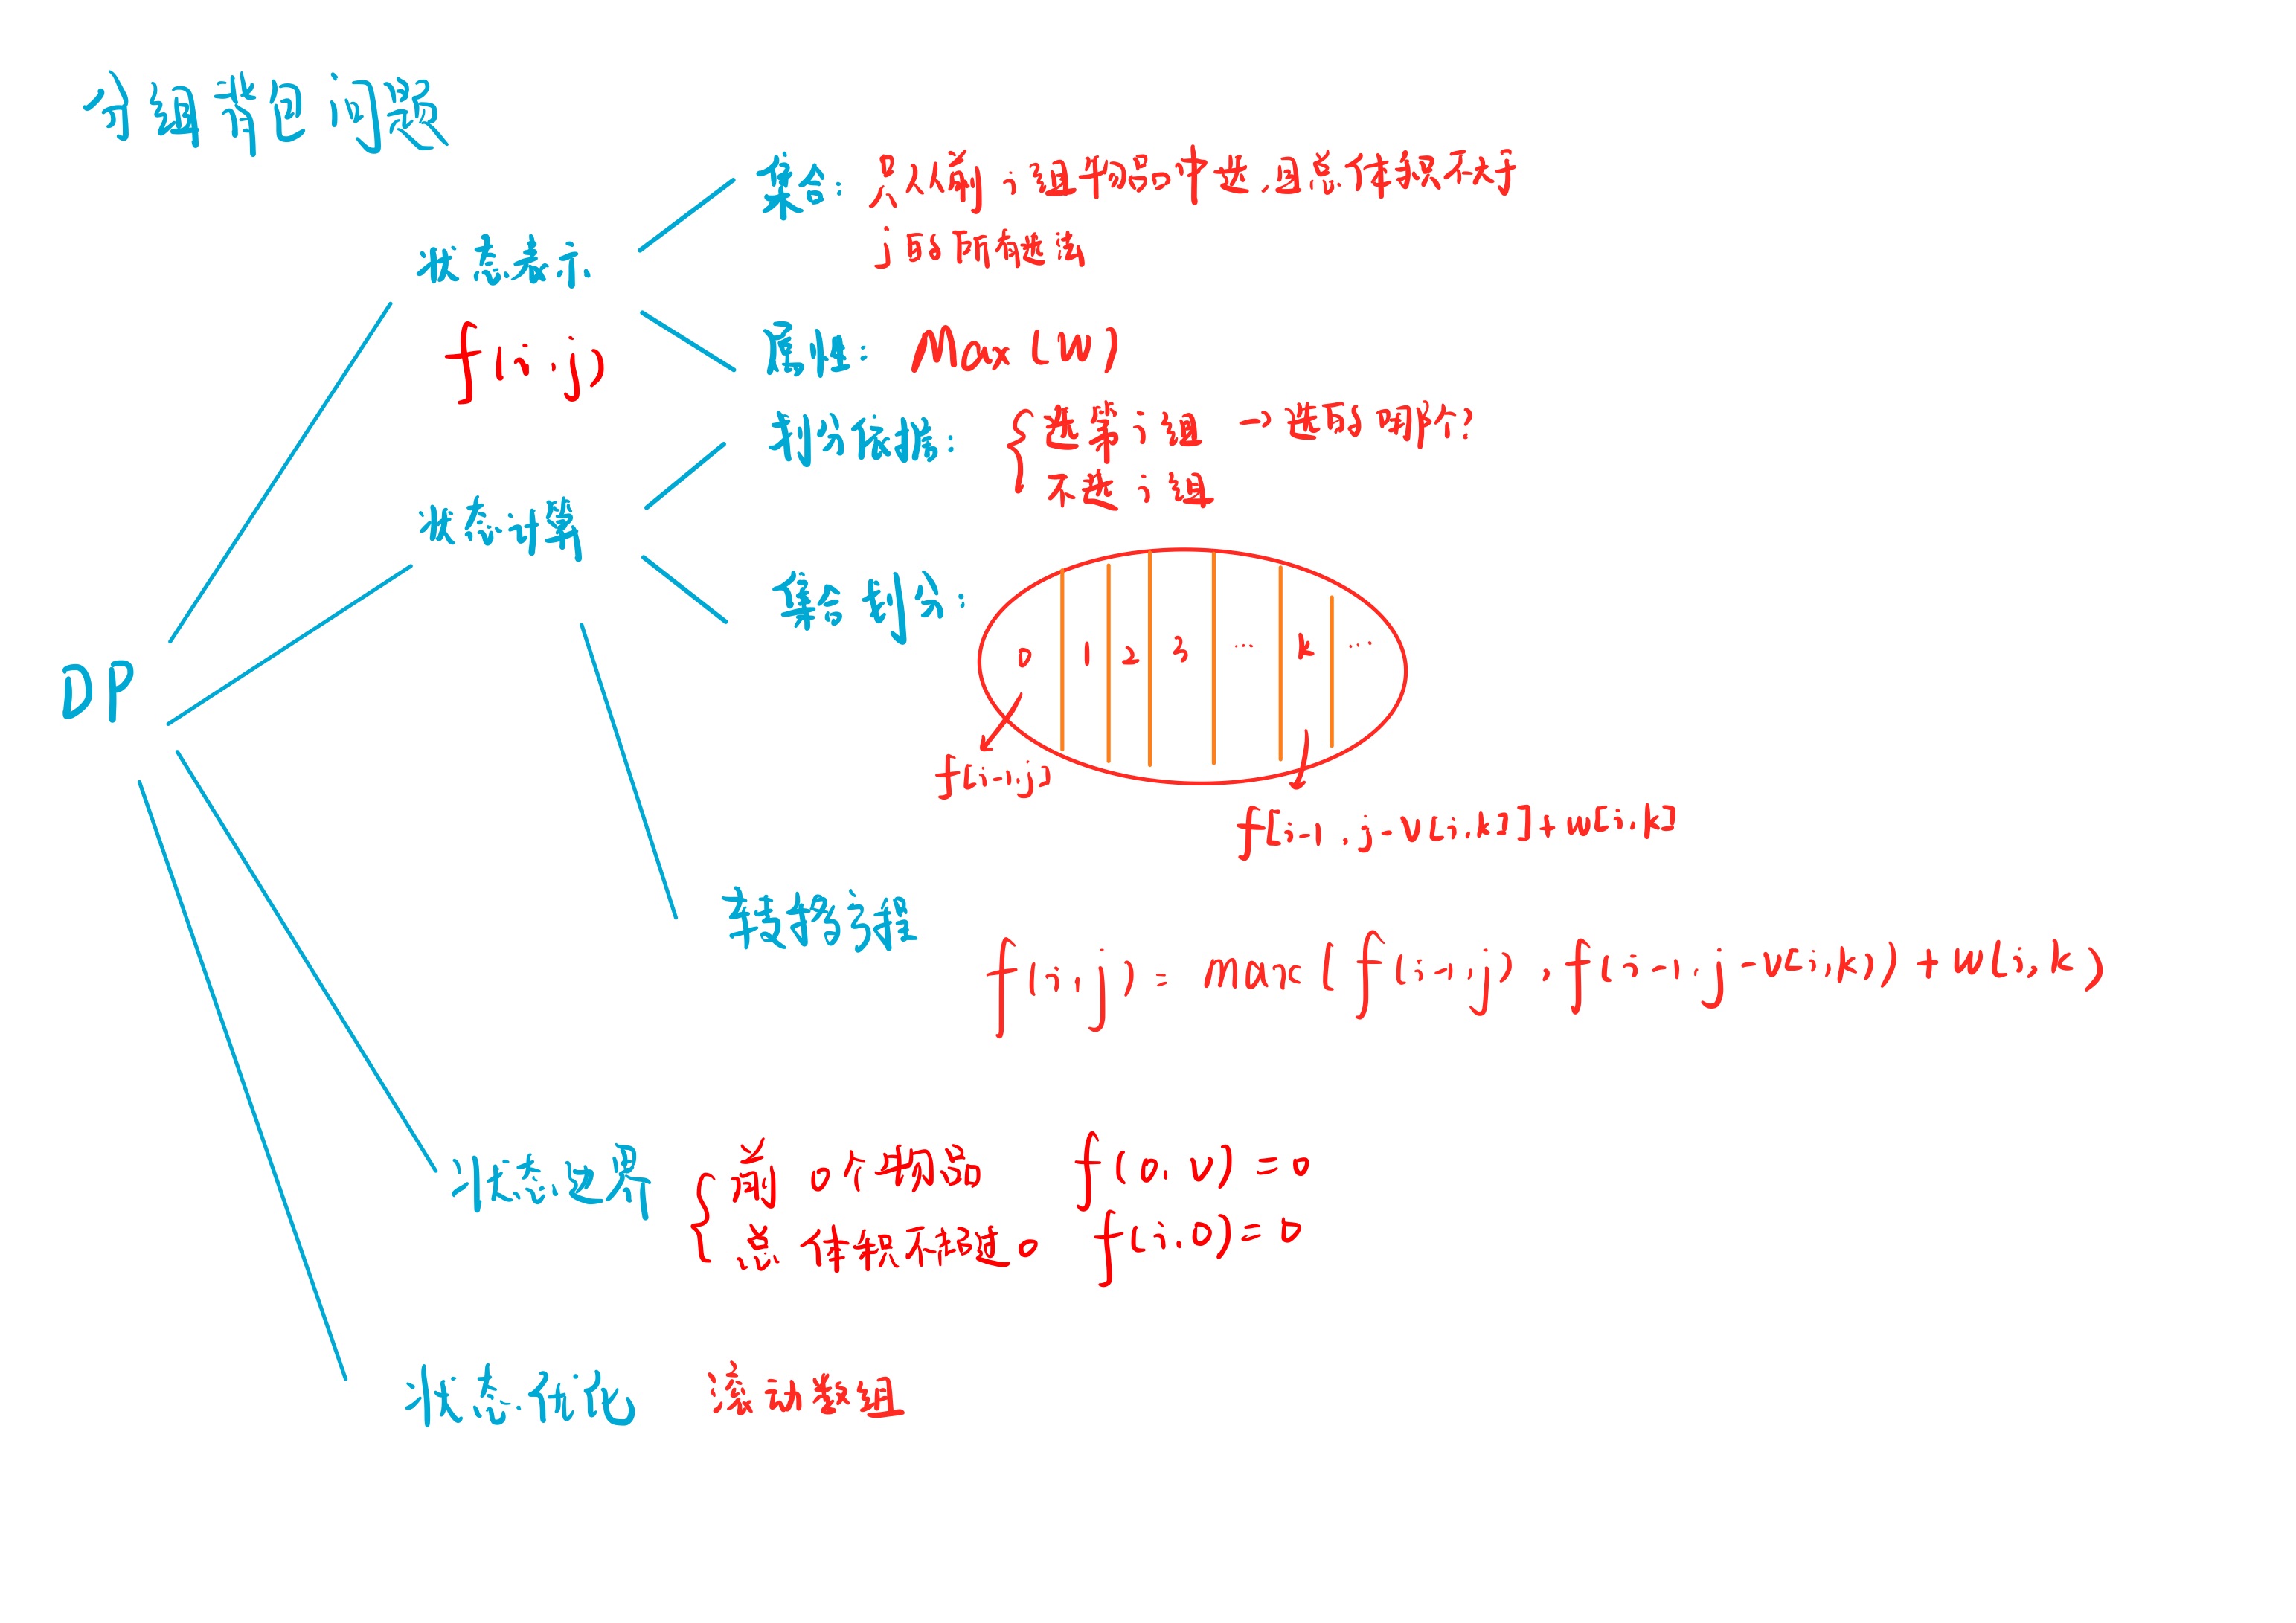 分组背包问题
集合: 只从前i组物品中选,且总体积不大于
j的所有选法
状态表示
f(i,j)
属性: Max(W)
划分依据: 选第i组 →选的哪个?
不选i组
状态计算
集合划分:
0 1 2 3 ... k ...
DP
f[i-1,j]
f[i-1,j-v[i,k]]+w[i,k]
转移方程
f(i,j)= max( f(i-1,j) ,f(i-1,j-v[i,k))+w(i,k)
状态边界 前0个物品 f(0,v)=0
总体积不超过0 f(i,0)=0
状态优化 滚动数组